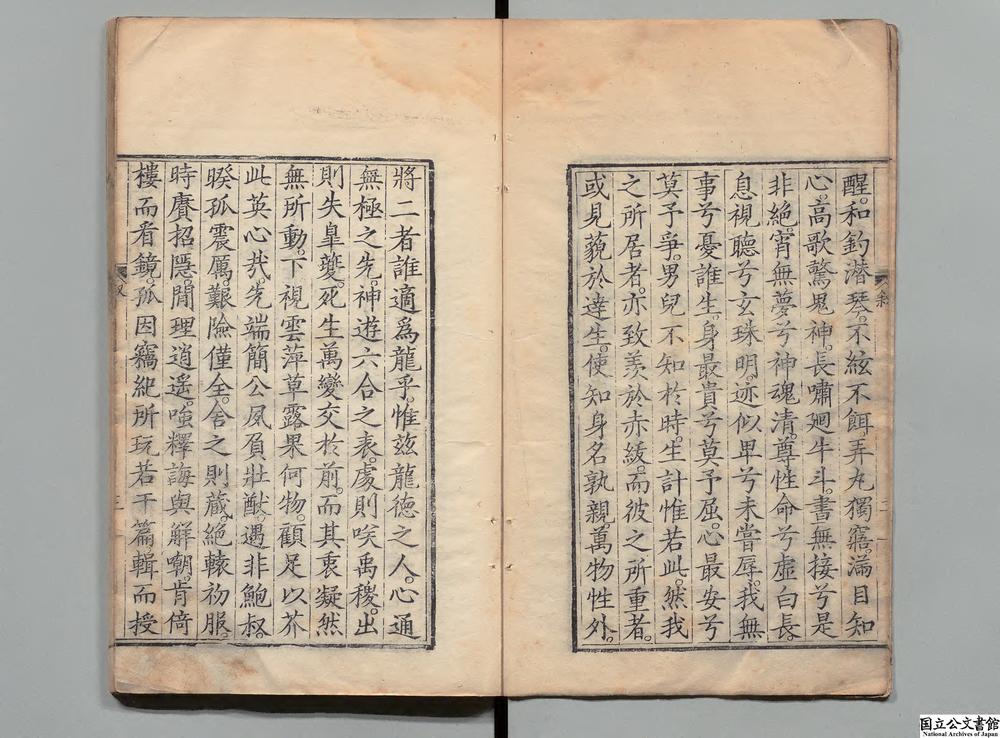 醒。和釣潜琴。不絃不餌弄丸獨窩。滿目知
心。高歌驚鬼神。長嘯廻牛斗。書無接兮是
非絕。宵無夢兮神魂清。尊性命兮虛白長。
息視聽兮玄珠明。迹似卑兮未嘗辱。我無
事兮憂誰生。身最貴兮莫予屈。心最安兮
莫予爭。男兒不知於時。生計惟若此。然我
之所居者。亦致羨於赤紱。而彼之所重者。
或見藐於達生。使知身名孰親。萬物性外。
將二者誰適爲龍乎。惟茲龍德之人。心通
無極之先。神遊六合之表。處則唉禹稷。出
則失臯夔。死生萬變交於前。而其衷凝然
無所動。下視雲萍草露果何物。顧足以芥
此英心哉。先端簡公夙負壯猷。遇非鮑叔。
暌孤震厲。艱險僅全。舍之則藏。絕轅初服。
時賡招隱。閒理逍遙。嗤釋誨與觧嘲。肯倚
樓而看鏡。孤因竊紀所玩若干篇輯而授
三
国立公文書館
National Archives of Japan